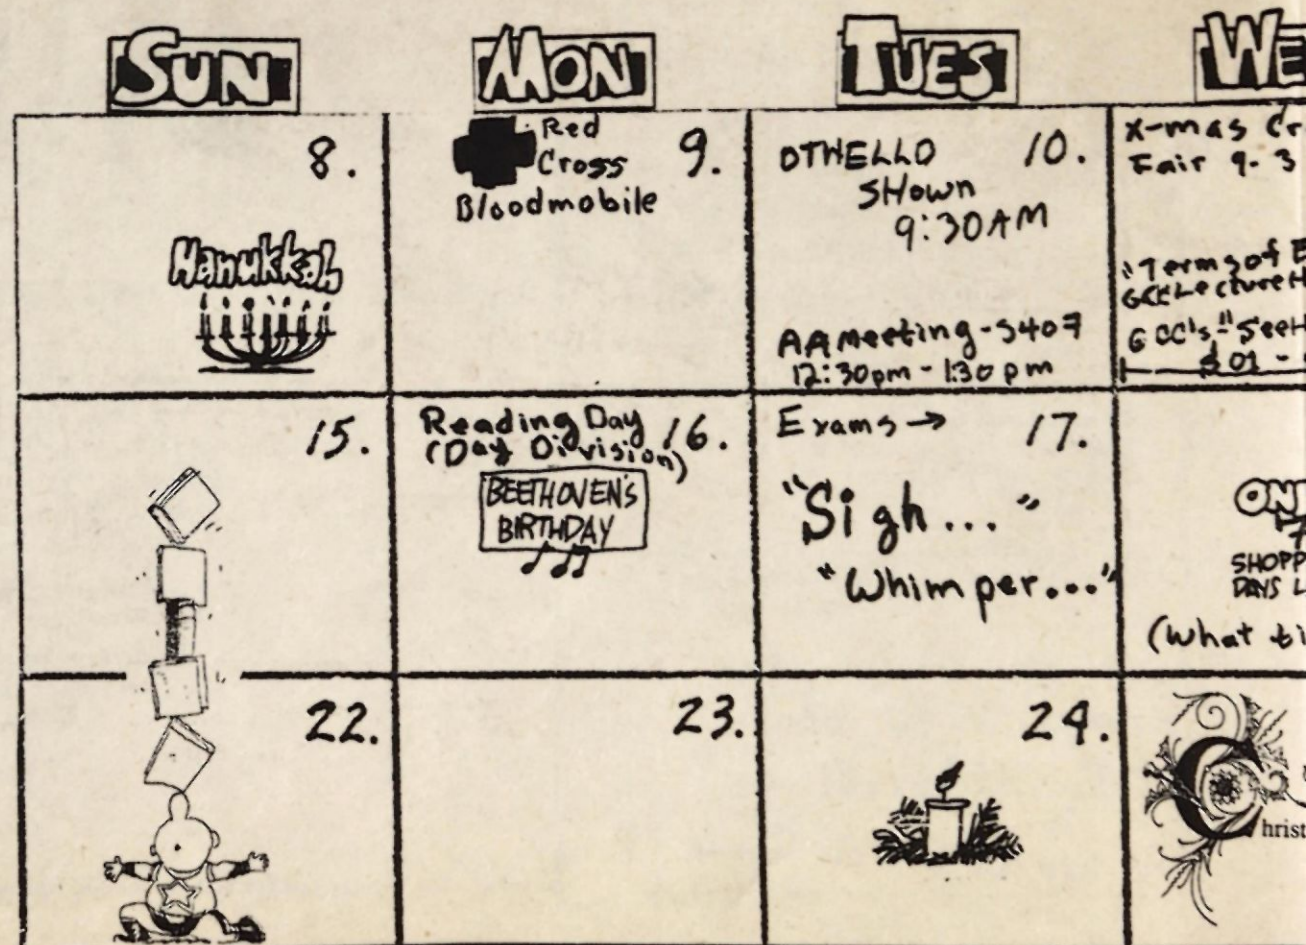 SUN
MON
TUES
WE
8.
Hanukkah
Red
Cross
Bloodmobile
9.
OTHELLO
SHown
9:30AM
10.
AA Meeting - S407
12:30pm - 1:30pm
X-mas Cr
Fair 9-3
"Terms of E
GCC Lecture H
GCC's "SeeH
$01 -
15.
Reading Day
(Day Division)
16.
BEETHOVEN'S
BIRTHDAY
Exams →
17.
"Sigh..."
"Whimper..."
ONL
7
SHOPP
DAYS L
(What ti
22.
23.
24.
Christ